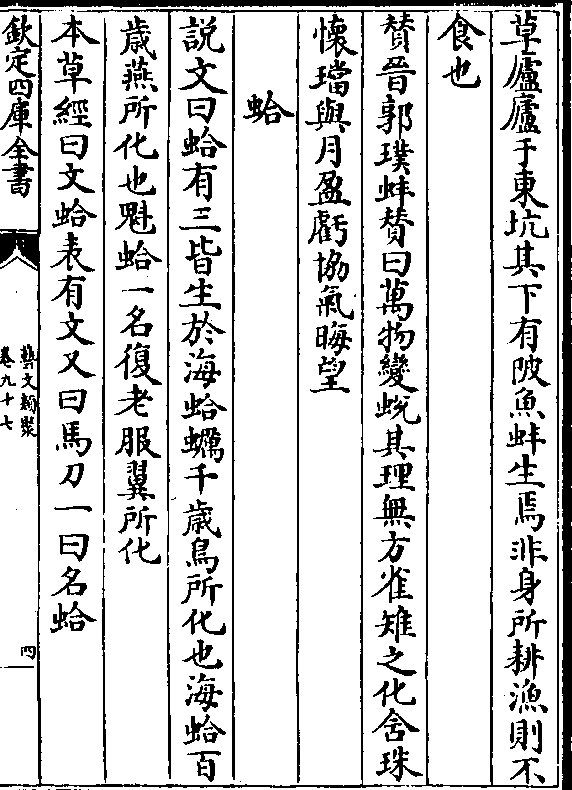 草廬廬于東坑其下有陂魚蚌生焉非身所耕漁則不
食也
賛晉郭璞蚌賛曰萬物變蛻其理無方雀雉之化含珠
懷璫與月盈虧協氣晦望
蛤
説文曰蛤有三皆生於海蛤蠣千歲鳥所化也海蛤百
歲燕所化也魁蛤一名復老服翼所化
本草經曰文蛤表有文又曰馬刀一曰名蛤
欽定四庫全書
藝文類聚
卷九十七
四